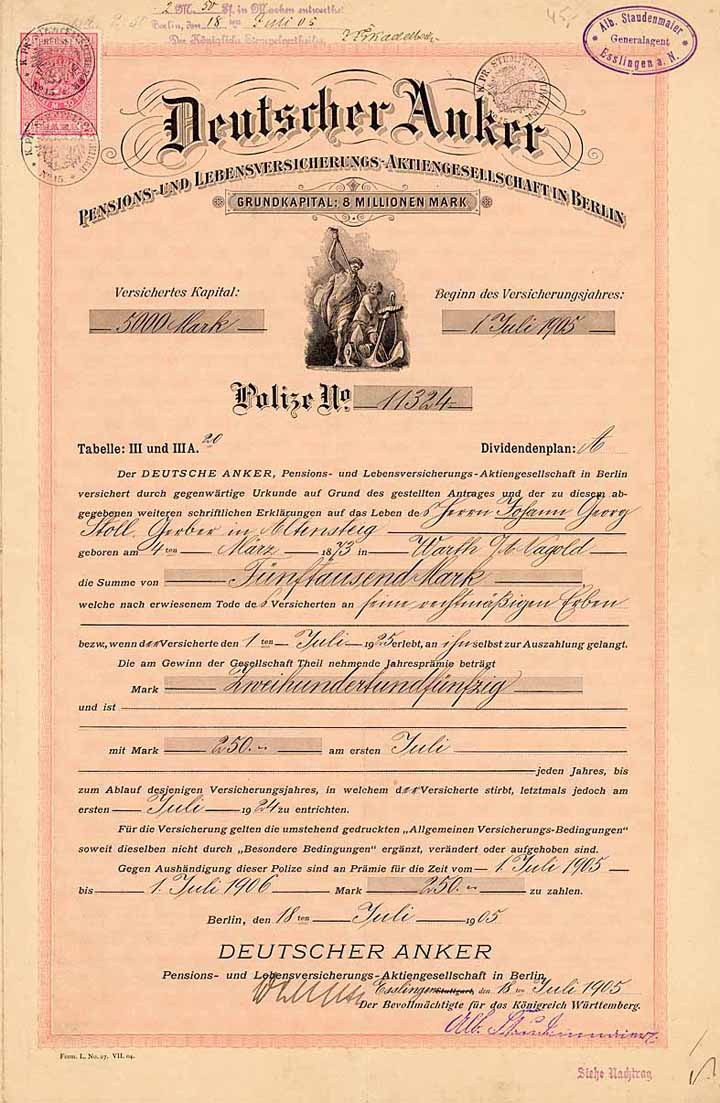 2 M. 50 Pf. in Marken entwertet
Berlin, den 18 ten Juli 05
Der Königliche Stempelverteiler
45
Alb. Staudenmaier
Generalagent
Esslingen a. N.
Deutscher Anker
PENSIONS- UND LEBENSVERSICHERUNGS-AKTIENGESELLSCHAFT IN BERLIN
GRUNDKAPITAL: 8 MILLIONEN MARK
Versichertes Kapital:
5000 Mark
Beginn des Versicherungsjahres:
1. Juli 1905
Polize No. 11324
Tabelle: III und III A. 20
Dividendenplan: A
Der DEUTSCHE ANKER, Pensions- und Lebensversicherungs-Aktiengesellschaft in Berlin
versichert durch gegenwärtige Urkunde auf Grund des gestellten Antrages und der zu diesem ab-
gegebenen weiteren schriftlichen Erklärungen auf das Leben des Herrn Johann Georg
Stoll, Gerber in Altensteig
geboren am 4 ten März 1873 in Warth Nagold
die Summe von Fünftausend Mark
welche nach erwiesenem Tode des Versicherten an seine rechtmäßigen Erben
bezw., wenn der Versicherte den 1 ten Juli 1925 erlebt, an ihn selbst zur Auszahlung gelangt.
Die am Gewinn der Gesellschaft Theil nehmende Jahresprämie beträgt
Mark Zweihundertundfünfzig
und ist
mit Mark 250.- am ersten Juli
jeden Jahres, bis
zum Ablauf desjenigen Versicherungsjahres, in welchem der Versicherte stirbt, letztmals jedoch am
ersten Juli 1924 zu entrichten.
Für die Versicherung gelten die umstehend gedruckten „Allgemeinen Versicherungs-Bedingungen"
soweit dieselben nicht durch „Besondere Bedingungen" ergänzt, verändert oder aufgehoben sind.
Gegen Aushändigung dieser Polize sind an Prämie für die Zeit vom 1. Juli 1905
bis 1. Juli 1906 Mark 250.- zu zahlen.
Berlin, den 18 ten Juli 1905
DEUTSCHER ANKER
Pensions- und Lebensversicherungs-Aktiengesellschaft in Berlin.
Esslingen Stuttgart, den 18 ten Juli 1905
Der Bevollmächtigte für das Königreich Württemberg.
Alb. Staudenmaier
Form. L. No. 27. VII. 04.
Siehe Nachtrag